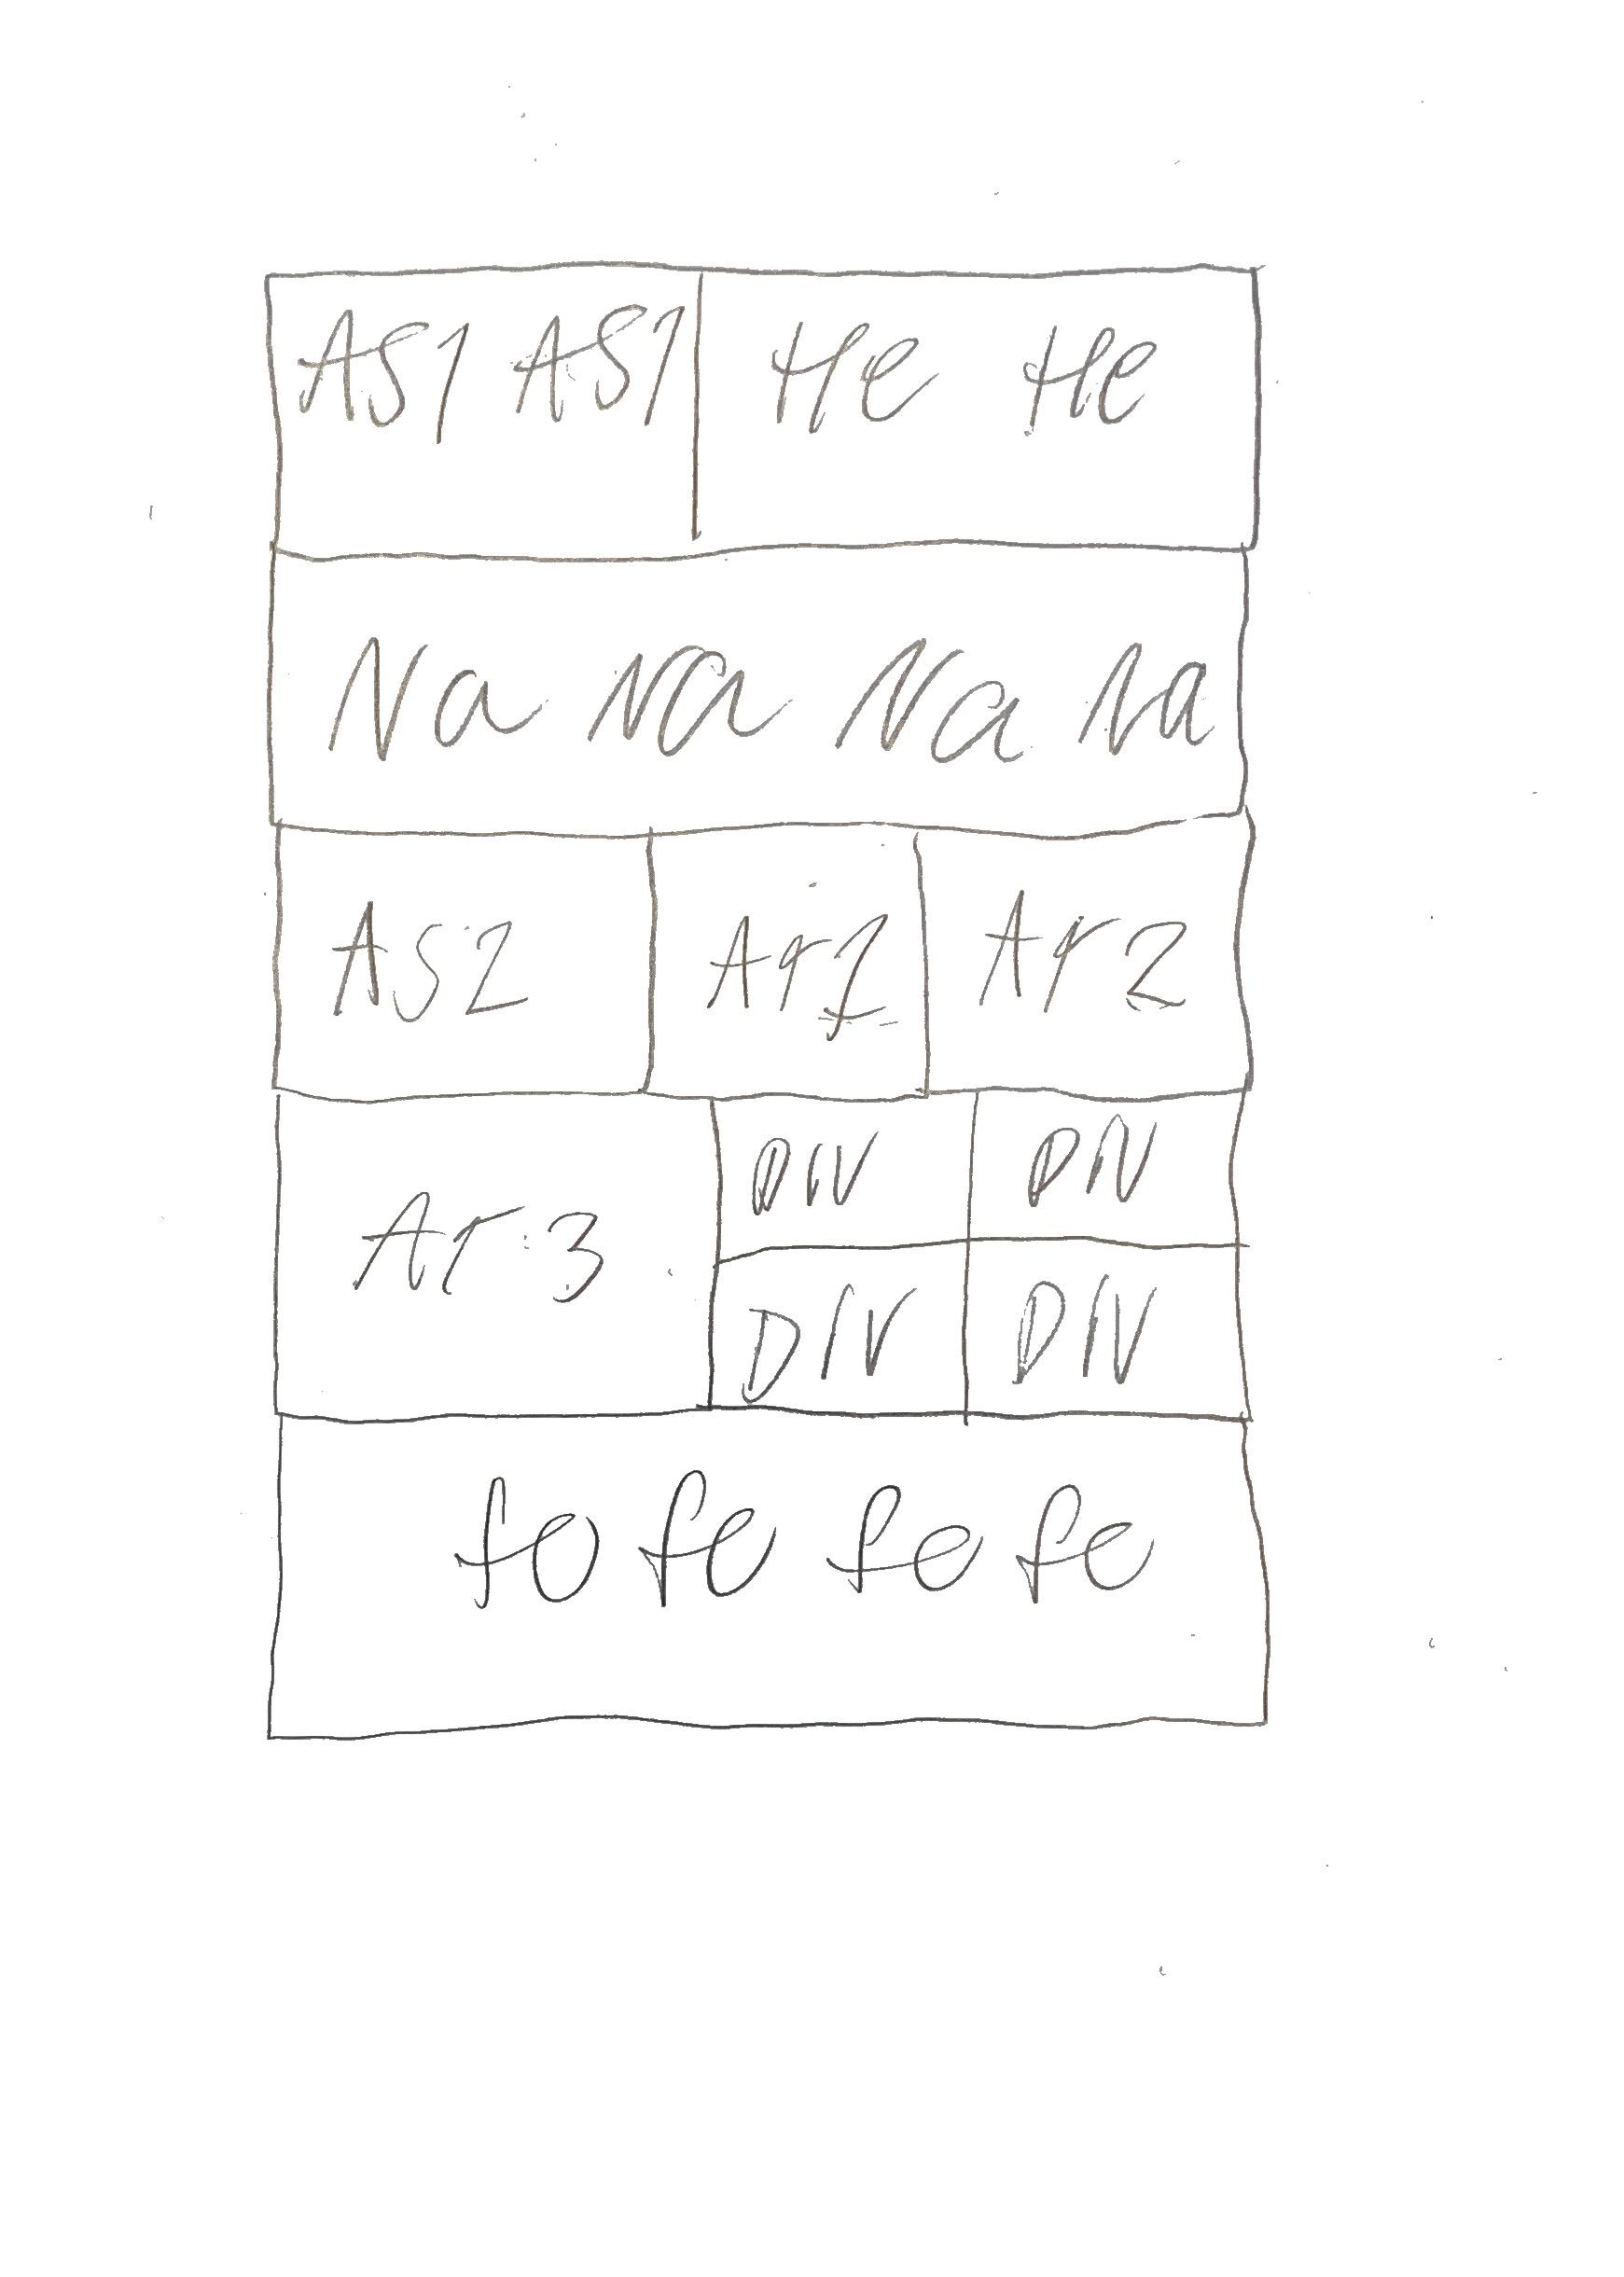 AS1 AS1 He He
Na Na Na Na
AS2 Ar1 Ar2
DIV DIV
Ar 3
DIV DIV
fo fe fo fe